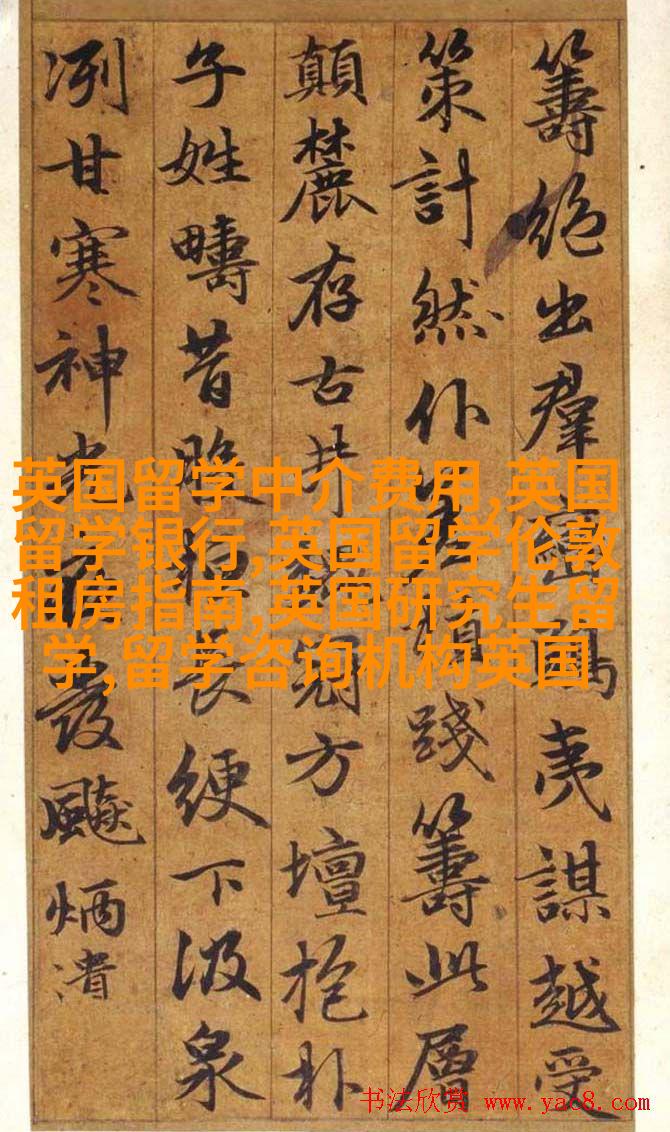 籌絶出羣鴟夷謀越受
策計然仆踐籌此層
顛麓存古井方壇抱朴
子姓疇昔長綆下汲泉
冽甘寒神發颷炳潰
英国留学中介费用,英国
留学银行,英国留学伦敦
租房指南,英国研究生留
学,留学咨询机构英国
书法欣赏 www.yac8.com